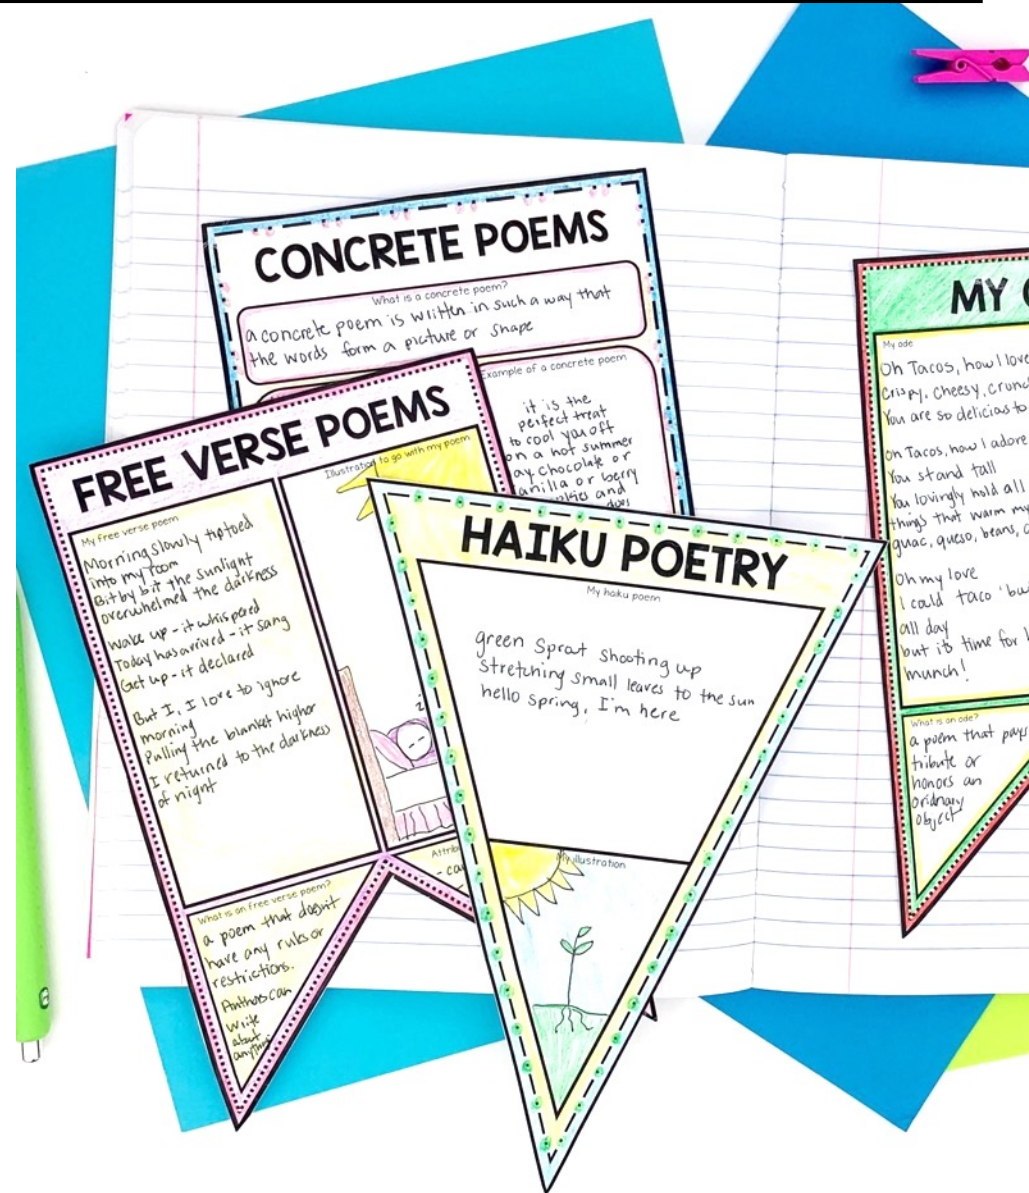 CONCRETE POEMS
What is a concrete poem?
a concrete poem is written in such a way that
the words form a picture or shape
Example of a concrete poem
it is the
perfect treat
to cool you off
on a hot summer
ay chocolate or
anilla or berry
okies and
does
FREE VERSE POEMS
My free verse poem
Morning slowly tiptoed
into my room
Bit by bit the sunlight
overwhelmed the darkness
Wake up - it whispered
Today has arrived - it sang
Get up - it declared
But I, I love to ignore
morning
Pulling the blanket higher
I returned to the darkness
of night
Illustration to go with my poem
z
What is an free verse poem?
a poem that doesn't
have any rules or
restrictions.
Authors can
write
about
anything
Attrib
- ca
HAIKU POETRY
My haiku poem
green Sprout shooting up
Stretching small leaves to the sun
hello Spring, I'm here
My illustration
MY
My ode
Oh Tacos, how I love
Crispy, Cheesy, crunc
You are so delicious to
Oh Tacos, how I adore
You stand tall
You lovingly hold all
things that warm my
guac, queso, beans, c
Oh my love
I could taco 'bou
all day
but it's time for l
munch!
What is an ode?
a poem that pays
tribute or
honors an
oridnary
object